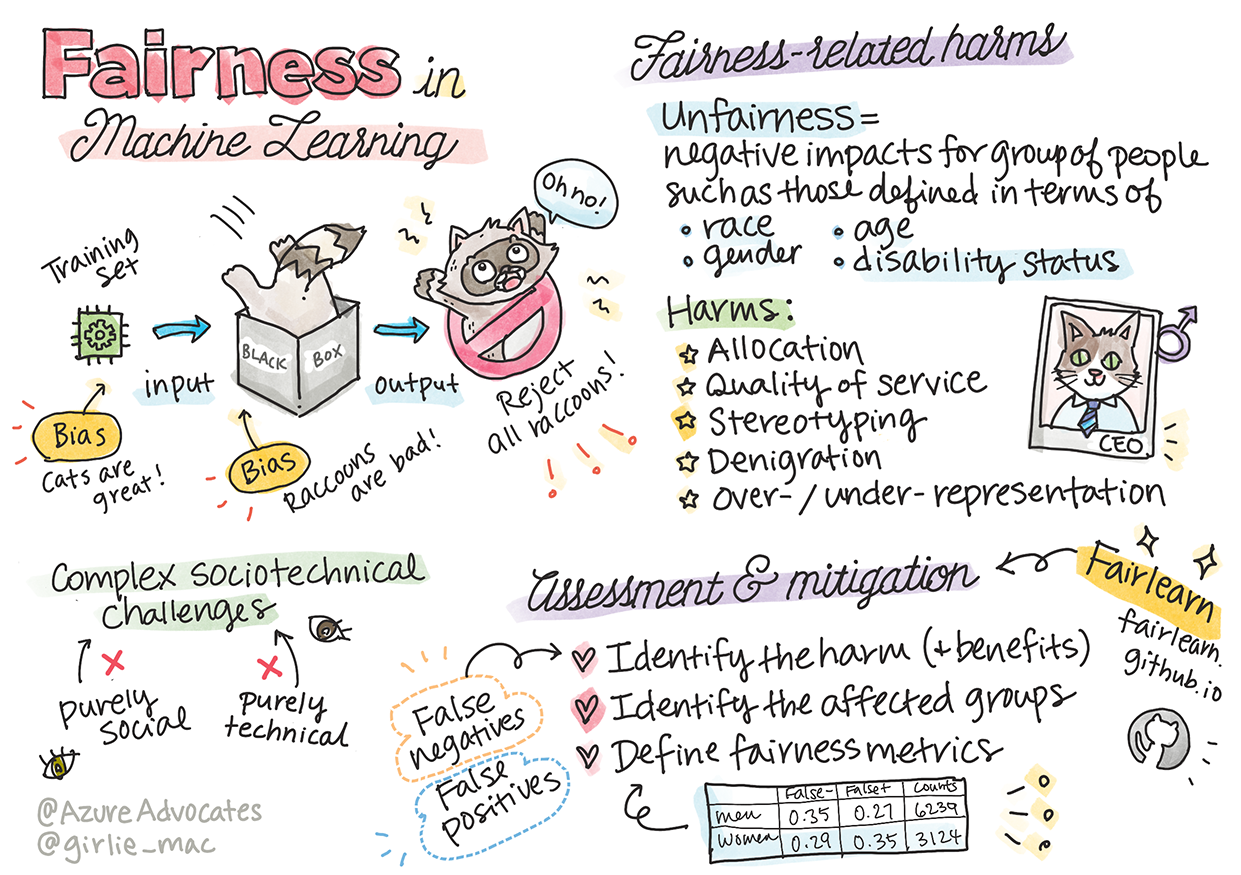 Fairness in
Machine Learning
Training
set
input
BLACK BOX
output
Oh no!
Reject
all raccoons!
Bias
cats are
great!
Bias
Raccoons
are bad!
Fairness-related harms
Unfairness =
negative impacts for group of people
such as those defined in terms of
• race
• age
• gender
• disability status
Harms:
Allocation
Quality of service
Stereotyping
Denigration
over- / under- representation
CEO
Complex sociotechnical
challenges
purely
social
purely
technical
@AzureAdvocates
@girlie_mac
Assessment & mitigation
Fairlearn
fairlearn.
github.io
Identify the harm (+ benefits)
Identify the affected groups
Define fairness metrics
False
negatives
False
positives
False- False+ Counts
men 0.35 0.27 6239
Women 0.29 0.35 3124